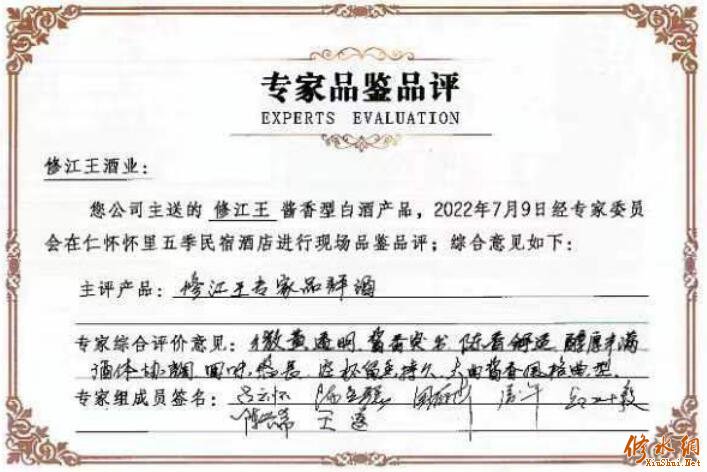 专家品鉴品评
EXPERTS EVALUATION
修江王酒业:
您公司主送的 修江王 酱香型白酒产品，2022年7月9日经专家委员
会在仁怀怀里五季民宿酒店进行现场品鉴品评；综合意见如下：
主评产品：修江王专家品鲜酒
专家综合评价意见：微黄透明 酱香突出 陈香舒适 醇厚丰满
酒体协调 回味悠长 空杯留香持久 大曲酱香风格典型.
专家组成员签名：吕云怀
修水网
XiuShui.Net